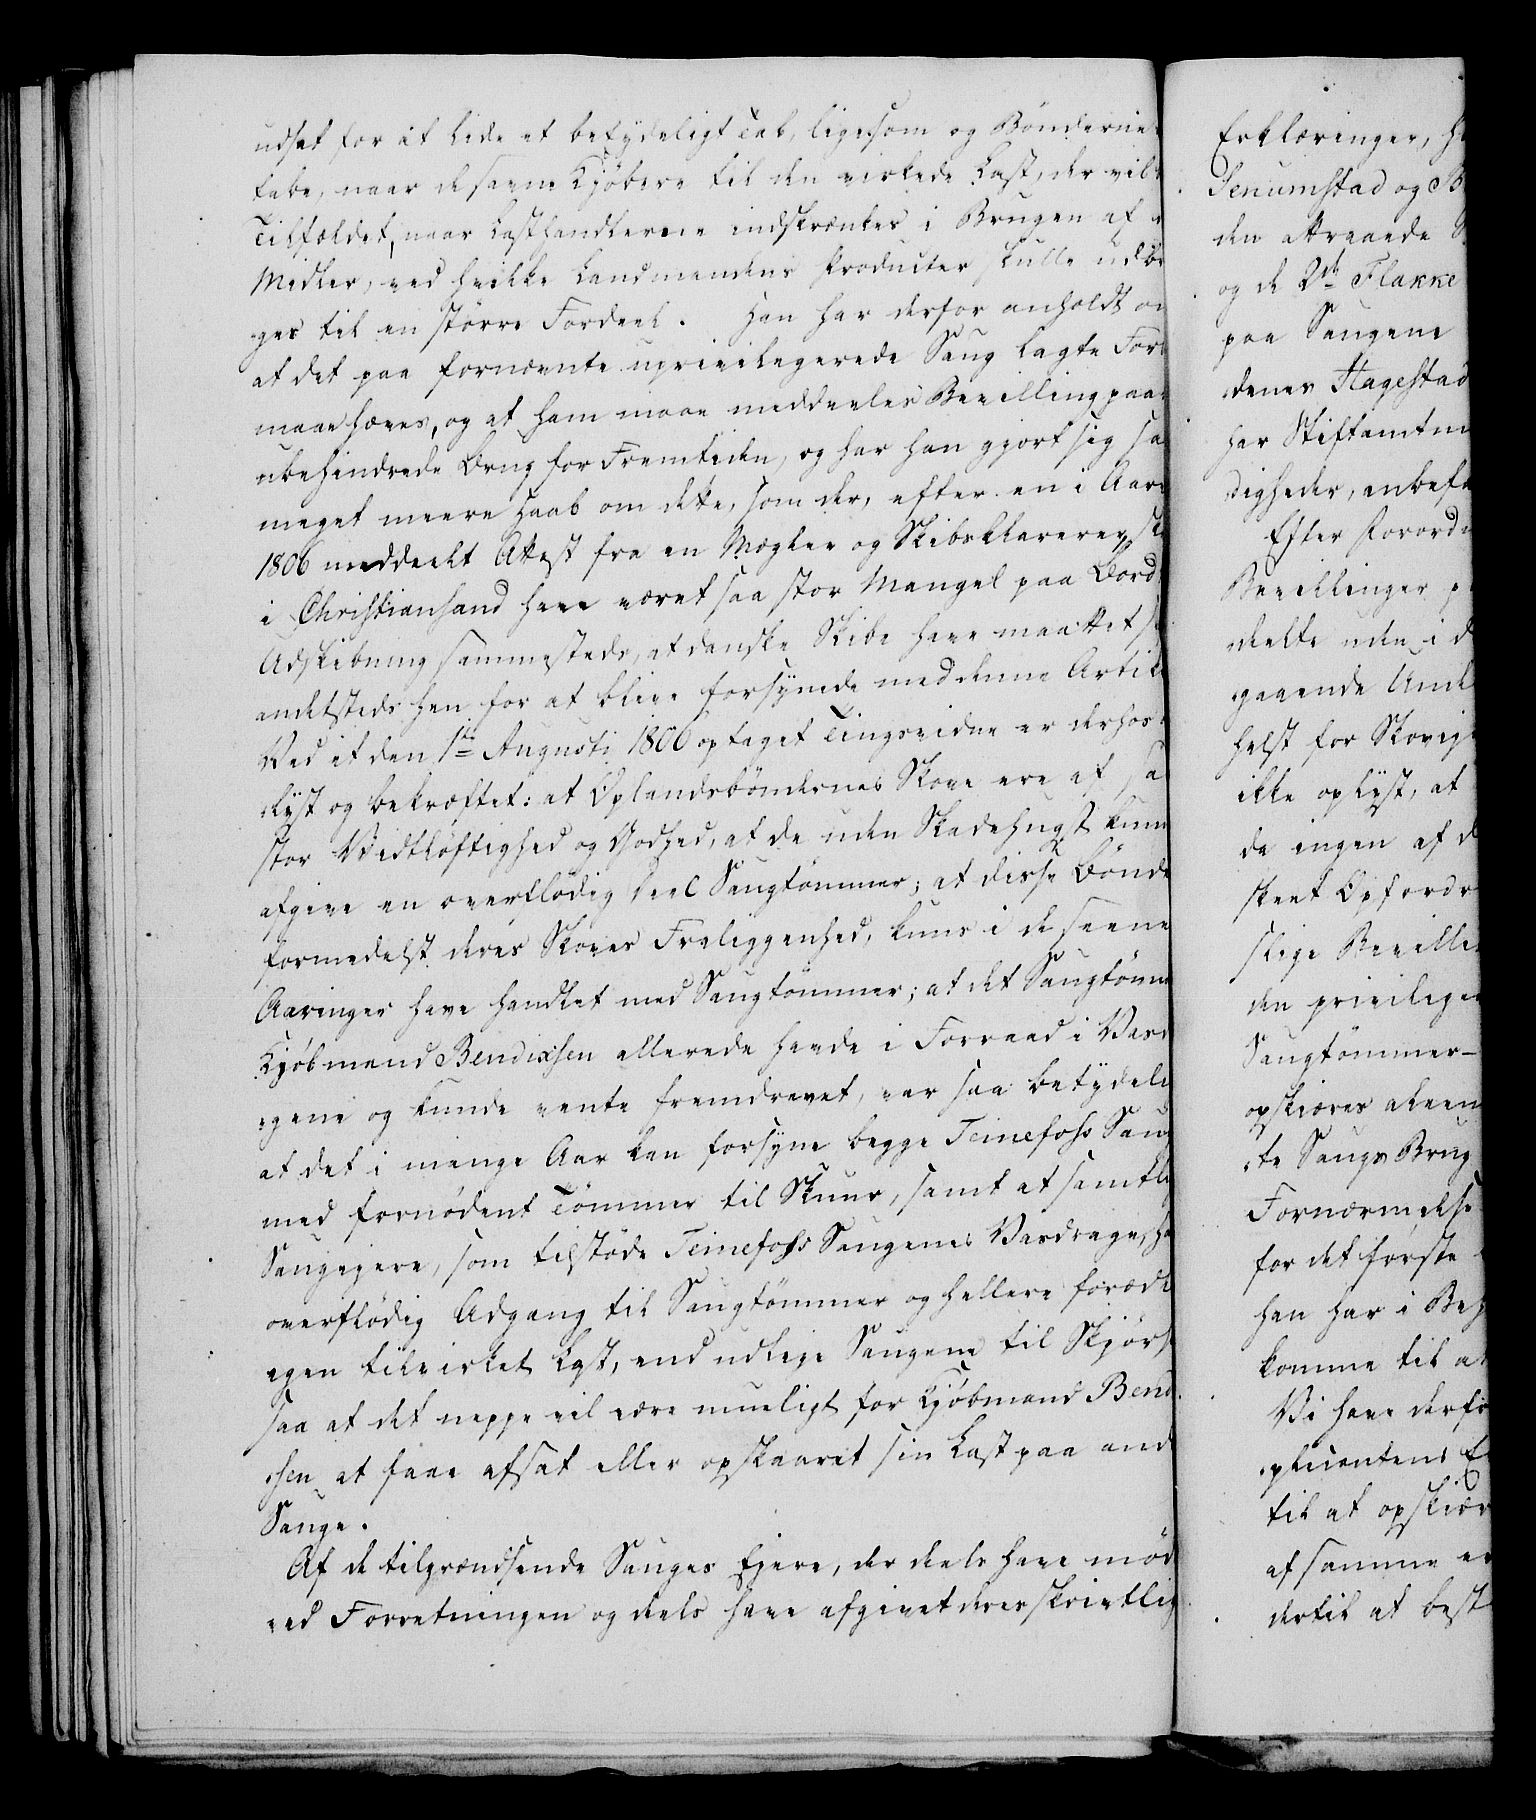 udsat for at lide et betydeligt Tab, ligesom og Bønderne
tabe, naar de savne Kjøbere til den virkede Last, der vil
Tilfældet, naar Lasthandlerne indskrænkes i Brugen af
Midler, ved hvilke Landmandens Producter skulle udbr
ges til en større Fordeel. Han har derfor anholdt om
at det paa fornævnte uprivilegerede Saug lagte For
maae hæves, og at ham maae meddeeles Bevilling paa
ubehindrede Brug for Fremtiden, og har han gjort sig saa
meget meere Haab om dette, som der, efter en i Aaret
1806 meddeelt Attest fra en Mægler og Skibsklarerer, skal
i Christiansand have været saa stor Mangel paa Bord
Udskibning sammesteds, at danske Skibe have maattet
andetsteds hen for at blive forsynede med denne Artikel
Ved et den 1te Augusti 1806 optaget Tingsvidne er derhos
lyst og bekræftet: at Oplandsbøndernes Skove ere af saa
stor Vidtløftighed og Godhed, at de uden Skadehugst kunne
afgive en overflødig Deel Saugtømmer; at disse Bønder
formedelst deres Skoves Fraliggenhed, kuns i de seene
Aaringer have handlet med Saugtømmer; at det Saugtømmer
Kjøbmand Bendixsen allerede havde i Forraad i Vasd
gene og kunde vente fremdrevet, var saa betydeli
at det i mange Aar kan forsyne begge Teinefoss Saug
med fornødent Tømmer til Skuur, samt at samtli
Saugejere, som tilstøde Teinefoss Saugenes Vasdrage, ha
overflødig Adgang til Saugtømmer og hellere foræd
egen tilvirket Last, end udleje Saugene til Skjørs
saa at det neppe vil være mueligt for Kjøbmand Bend
sen at faae afsat eller opskaaret sin Last paa and
Sauge.
Af de tilgrændsende Sauges Ejere, der deels have mød
ved Forretningen og deels have afgivet deres skrivtlig
Erklæringer, h
Senumstad og B
den attraaede S
og de 2de Flakke
paa Saugene
denes Hagestad
har Stiftamtm
digheder, anbefa
Efter Forordn
Bevillinger p
deelte uden i d
gaaende Unde
helst for Skovej
ikke oplyst, at
da ingen af d
skeet Opfordr
slige Beville
den privilege
Saugtømmer-
opskæres aleen
te Saugs Brug
Fornærmelse
for det første
han har i Beh
komme til at
Vi have derfo
plicantens E
til at opskiær
af samme er
dertil at best